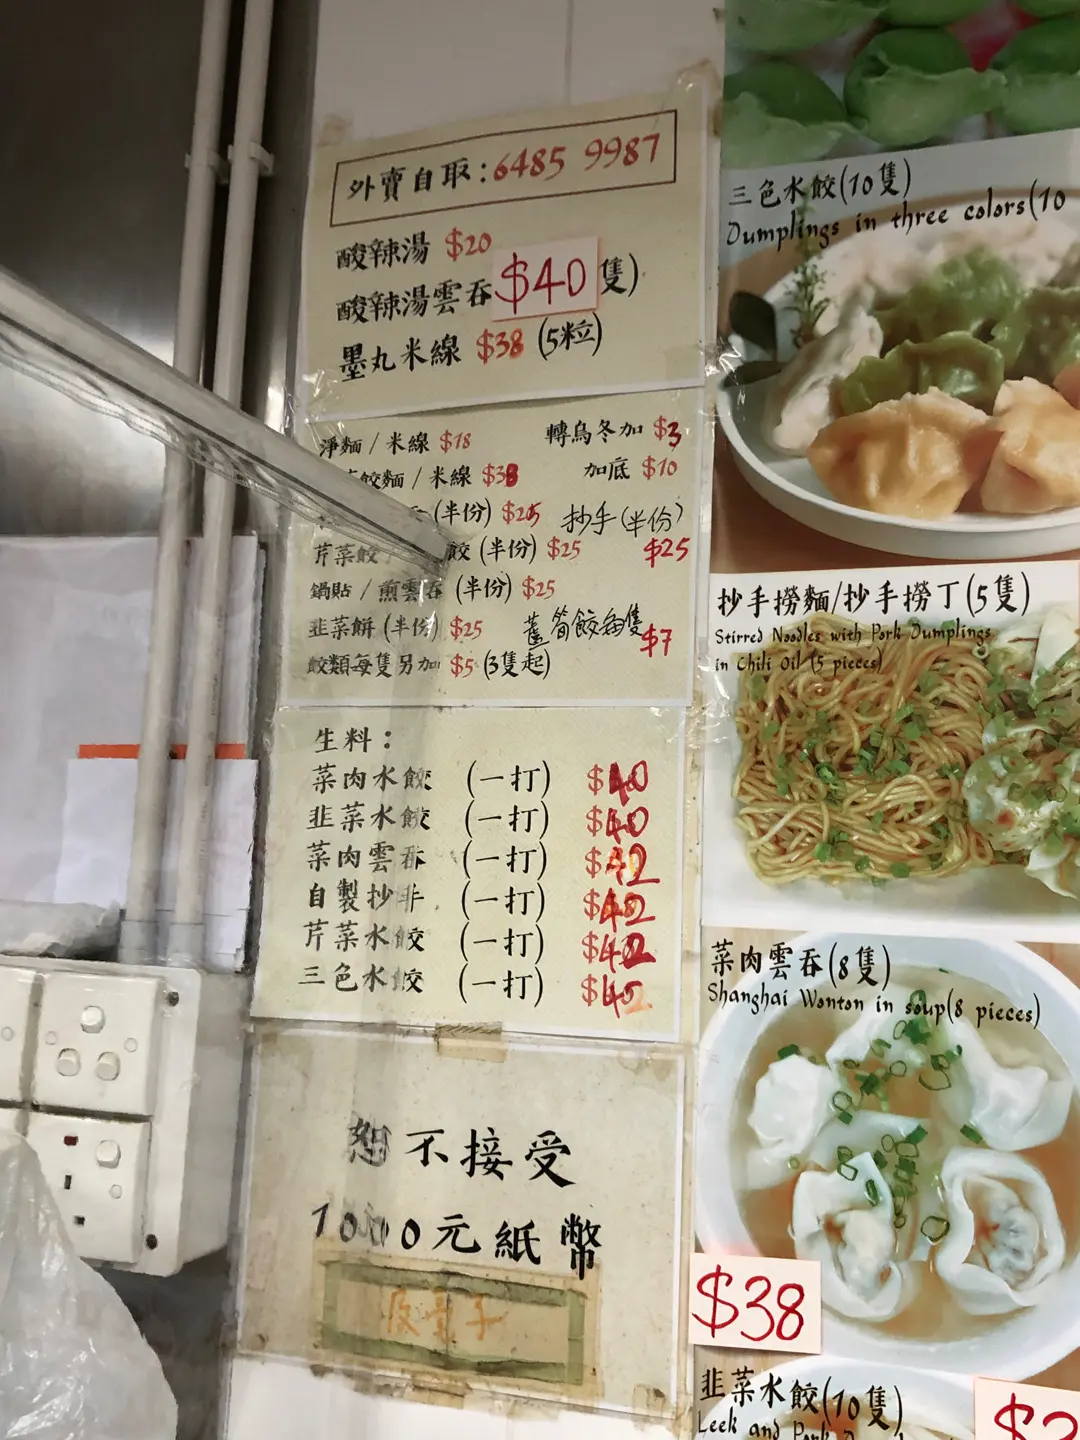 外賣自取:6485 9987
酸辣湯 $20
酸辣湯雲吞 $40 隻)
墨丸米線 $38 (5粒)
淨麵 / 米線 $18 轉烏冬加 $3
餃麵 / 米線 $38 加底 $10
(半份) $25 抄手(半份)
芹菜餃 餃 (半份) $25 $25
鍋貼 / 煎雲吞 (半份) $25
韭菜餅 (半份) $25 筍餃每隻 $7
餃類每隻另加 $5 (3隻起)
生料:
菜肉水餃 (一打) $40
韭菜水餃 (一打) $40
菜肉雲吞 (一打) $42
自製抄手 (一打) $42
芹菜水餃 (一打) $42
三色水餃 (一打) $45
恕不接受
1000元紙幣
三色水餃(10隻)
Dumplings in three colors(10
抄手撈麵/抄手撈丁(5隻)
Stirred Noodles with Pork Dumplings
in Chili Oil (5 pieces)
菜肉雲吞(8隻)
Shanghai Wonton in soup(8 pieces)
$38
韭菜水餃(10隻)
Leek and Pork